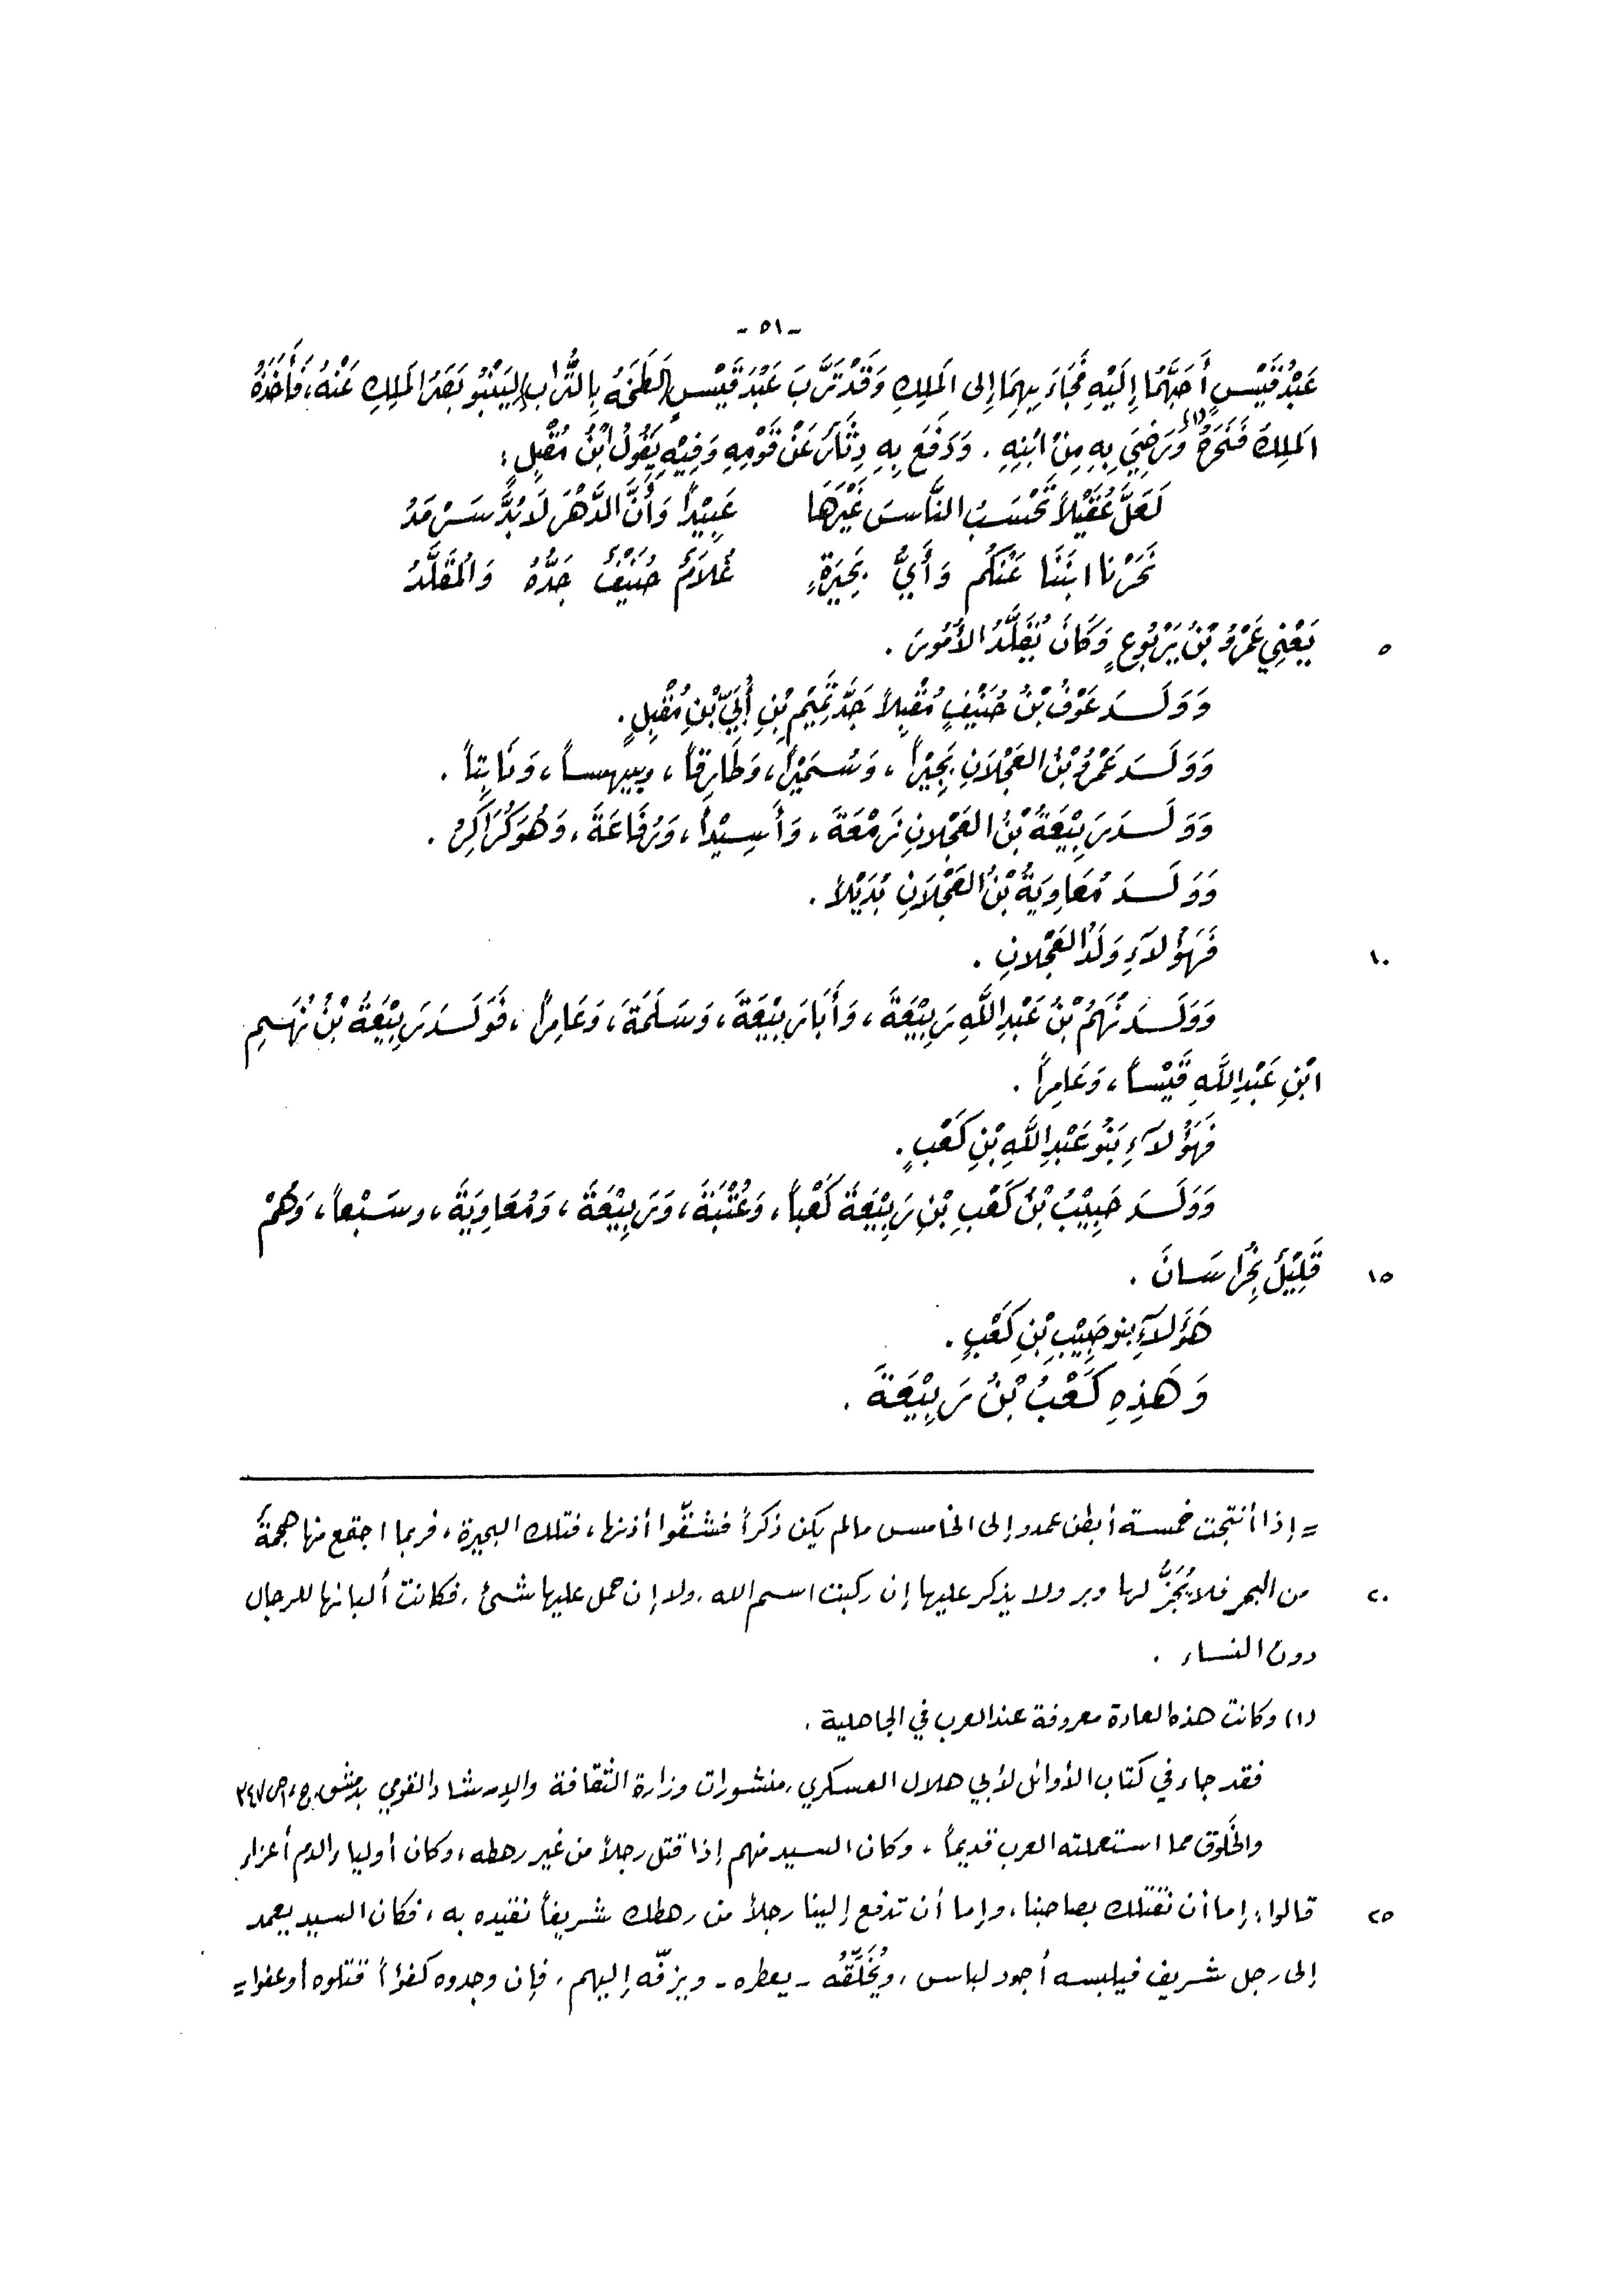 -٥١-
عَبْدُ قَيْسٍ أَحَبَّهُمَا إِلَيْهِ فَجَاءَ بِهِمَا إِلى المَلِكِ وَقَدْ تَرَّبَ عَبْدَ قَيْسٍ (لَطَخَهُ بِالتُّرَابِ) لِيَنْبُو بَصَرُ المَلِكِ عَنْهُ، فَأَخَذَهُ
المَلِكُ فَنَحَرَهُ (١) وَرَضِيَ بِهِ مِنْ ابْنِهِ . وَدَفَعَ بِهِ دِثَارَ عَنْ قَوْمِهِ وَفِيْهِ يَقُولُ ابْنُ مُقْبِلٍ :
لَعَلَّ عُقَيْلاً تَحْسَبُ النَّاسَ غَيْرَهَا عَبِيْداً وَأَنَّ الدَّهْرَ لَا بُدَّ سَرْمَدُ
نَحَرْنَا ابْنَنَا عَنْكُم وَأَيُّ بَحِيَرَةٍ غُلاَمٌ حُنَيْفٌ جَدُّهُ وَالمُقَلَّدُ
٥ يَعْنِي عَمْرُو بْنُ يَرْبُوعٍ وَكَانَ يُقَلَّدُ الأُمُورَ .
وَوَلَدَ عَوْفُ بْنُ حُنَيْفٍ مُقْبِلاً جَدَّ تَمِيْمِ بْنِ أُبَيِّ بْنِ مُقْبِلٍ .
وَوَلَدَ عَمْرُو بْنُ العَجْلَانِ بُجَيْراً ، وَسُمَيْراً ، وَطَارِقاً ، وبيهساً ، وَثَابِتاً .
وَوَلَدَ رَبِيْعَةُ بْنُ العَجْلانِ زَمْعَةَ ، وَأَسِيْداً ، وَرُفَاعَةَ ، وَهُوَ كُرَاكِرُ .
وَوَلَدَ مُعَاوِيَةُ بْنُ العَجْلَانِ بُدَيْلاً .
١٠ فَهَؤُلاَءِ وَلَدُ العَجْلانِ .
وَوَلَدَ نُهَمُ بْنُ عَبْدِ اللَّهِ رَبِيْعَةَ ، وَأَبَا رَبِيْعَةَ ، وَسَلَمَةَ ، وَعَامِراً ، فَوَلَدَ رَبِيْعَةُ بْنُ نُهَمِ
ابْنِ عَبْدِ اللَّهِ قَيْساً ، وَعَامِراً .
فَهَؤُلاَءِ بَنُو عَبْدِ اللَّهِ بْنِ كَعْبٍ .
وَوَلَدَ حَبِيْبُ بْنُ كَعْبِ بْنِ رَبِيْعَةَ كَعْباً ، وَعُتْبَةَ ، وَرَبِيْعَةَ ، وَمُعَاوِيَةَ ، وسَبْعاً ، وَهُمْ
١٥ قَلِيْلٌ بِخُرَاسَانَ .
هَؤُلاَءِ بنو حَبِيْبِ بْنِ كَعْبٍ .
وَهَذِهِ كَعْبُ بْنُ رَبِيْعَةَ .
= إذا أنتجت خمسة أبطن عمدو إلى الخامس مالم يكن ذكراً فشقّوا أذنها ، فتلك البحيرة ، فربما اجتمع منها هجمةٌ
٢٠ من البحر فلا يُجَزُّ لها وبر ولا يذكر عليها إن ركبت اسم الله ، ولا إن حمل عليها شئ ، فكانت ألبانها للرجال
دون النساء .
(١) وكانت هذه العادة معروفة عند العرب في الجاهلية .
فقد جاء في كتاب الأوائل لأبي هلال العسكري ، منشورات وزارة الثقافة والإرشاد القومي بدمشق ، ج ١، ص ٢٤٧
والخَلوق مما استعملته العرب قديماً ، وكان السيد منهم إذا قتل رجلاً من غير رهطه ، وكان أولياء الدم أعزاء
٢٥ قالوا : إما أن نقتلك بصاحبنا ، وإما أن تدفع إلينا رجلاً من رهطك شريفاً نقيده به ، فكان السيد يعمد
إلى رجل شريف فيلبسه أجود لباس ، ويُخَلِّقُه - يعطره - ويزفّه إليهم ، فإن وجدوه كفؤاً قتلوه أو عفوا =